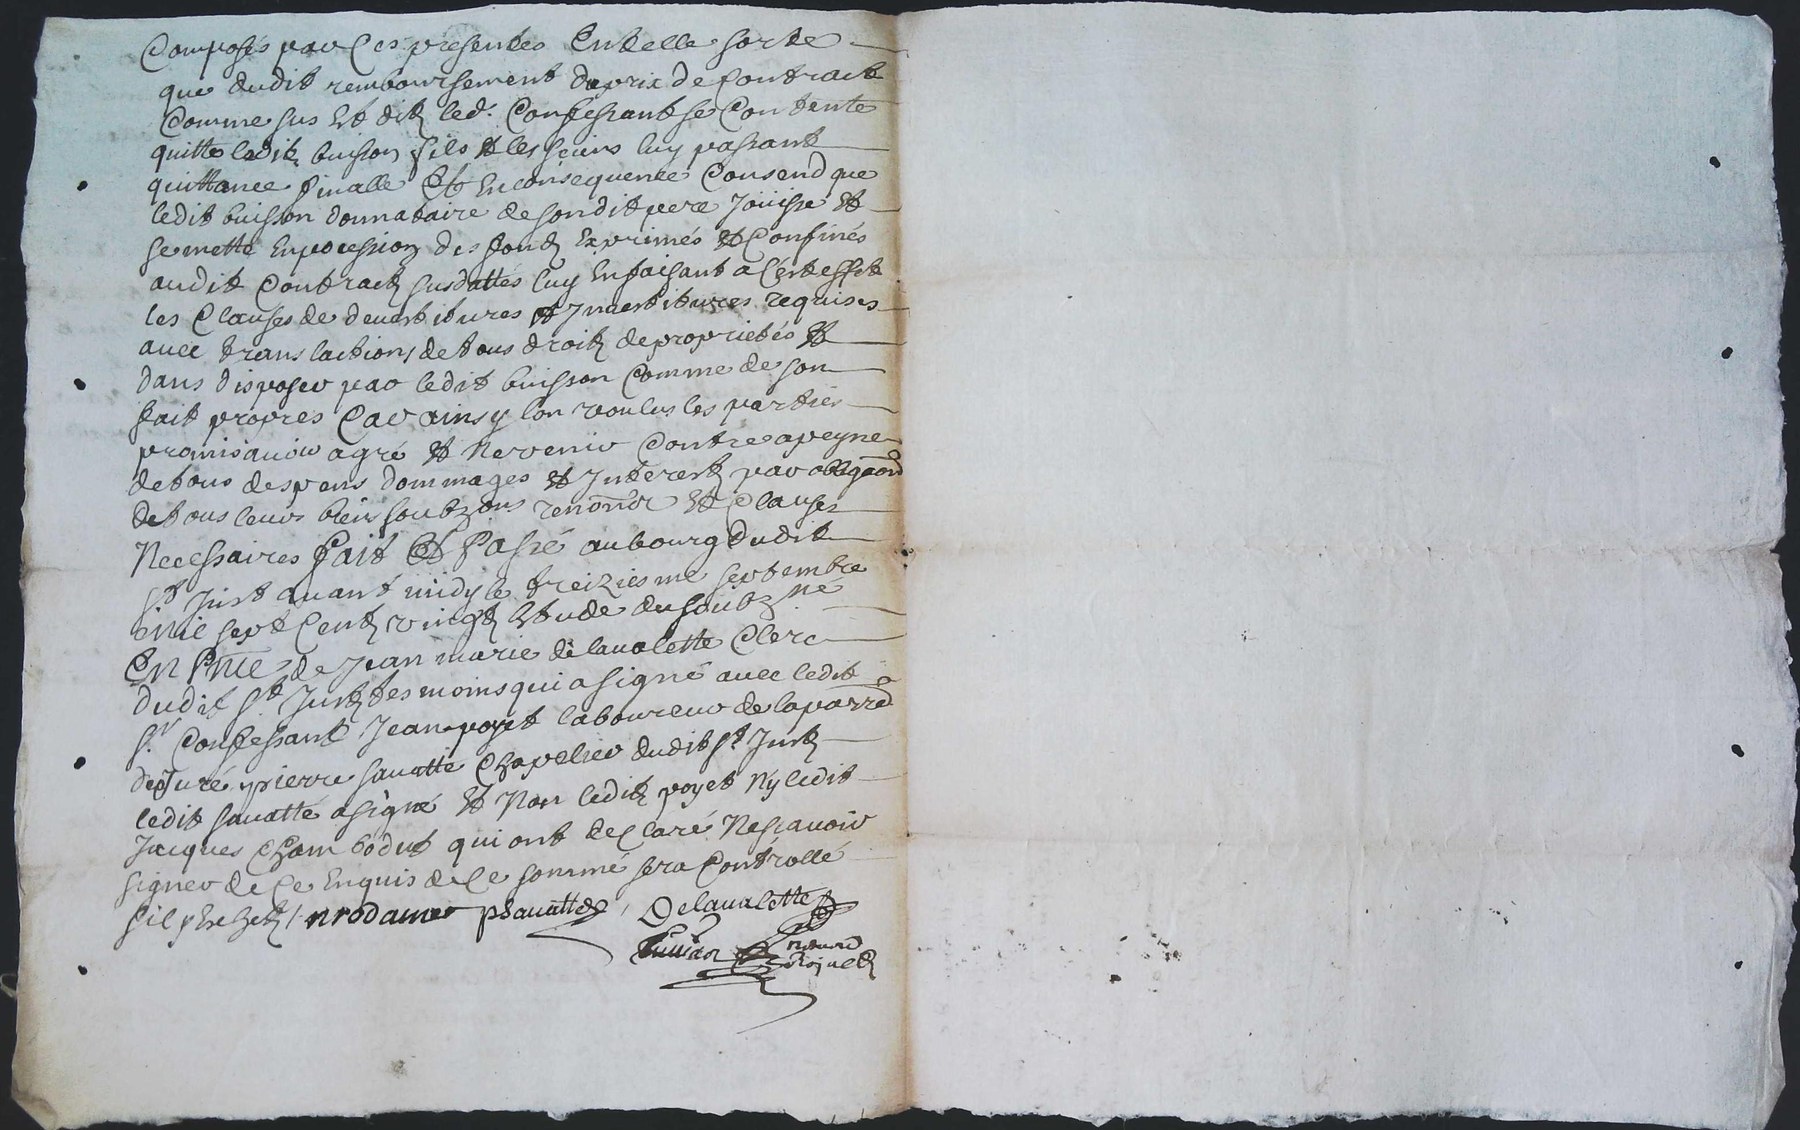 Composés par Ces presentes En telle sorte
que dudit remboursement du prix de Contract
Comme sus Est dit led. Confessant se Contente
quitte ledit buisson fils et les siens luy passant
quittance finalle Et En consequence Consend que
ledit buisson donnataire de sondit pere Jouisse Et
se mette En pocession des fonds Exprimés et Confinés
audit Contract susdattés luy En faisant a Cest effect
les Clauses de devestitures et Investitures requises
avec translactions de tous droits de proprietés Et
dans disposer par ledit buisson Comme de son
fait propres Car ainsy lon voulus les parties
promis avoir agré et Ne venir Contre a peyne
de tous despens dommages et Interests par obligaōn
de tous leurs biens soubzōns renonōn Et Clauses
Necessaires Fait Et Passé au bourg dudit
St Just avant midy le treiziesme septembre
mil sept Cents vingt Estude du soubzné
En Pnce de Jean marie delavalette Clerc
dudit St Just tesmoins qui a signé avec ledit
Sr Confessant Jean poyet laboureur de
de Curé pierre savatte Chapelier dudit St Just
ledit savatte a signé et Non ledit poyet Ny ledit
Jacques Chambodut qui ont declaré Ne sçavoir
signer de Ce Enquis de Ce sommé sera Controllé
sil y Echet / psavatte Delavalette